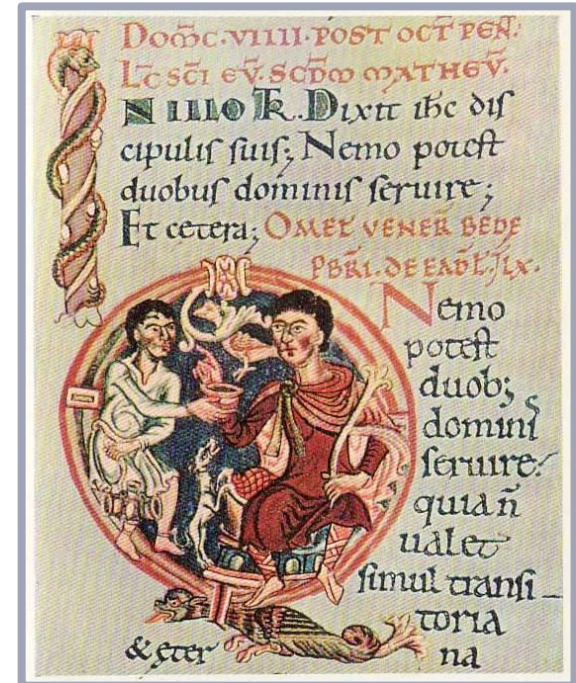 DOM̅C·VIIII·POST OCT PEN̅:
LC̅ SC̅I EV̅. SCD̅O MATHEV̅.
N ILLO T̅R. Dixit ihc dis
cipulis suis; Nemo potest
duobus dominis seruire;
Et cetera; OMEL VENER̅ BEDE
PB̅RI. DE EAD̅
Nemo
potest
duob;
domini
seruire:
quia n̅
ualet
simul transi
toria
& eter na